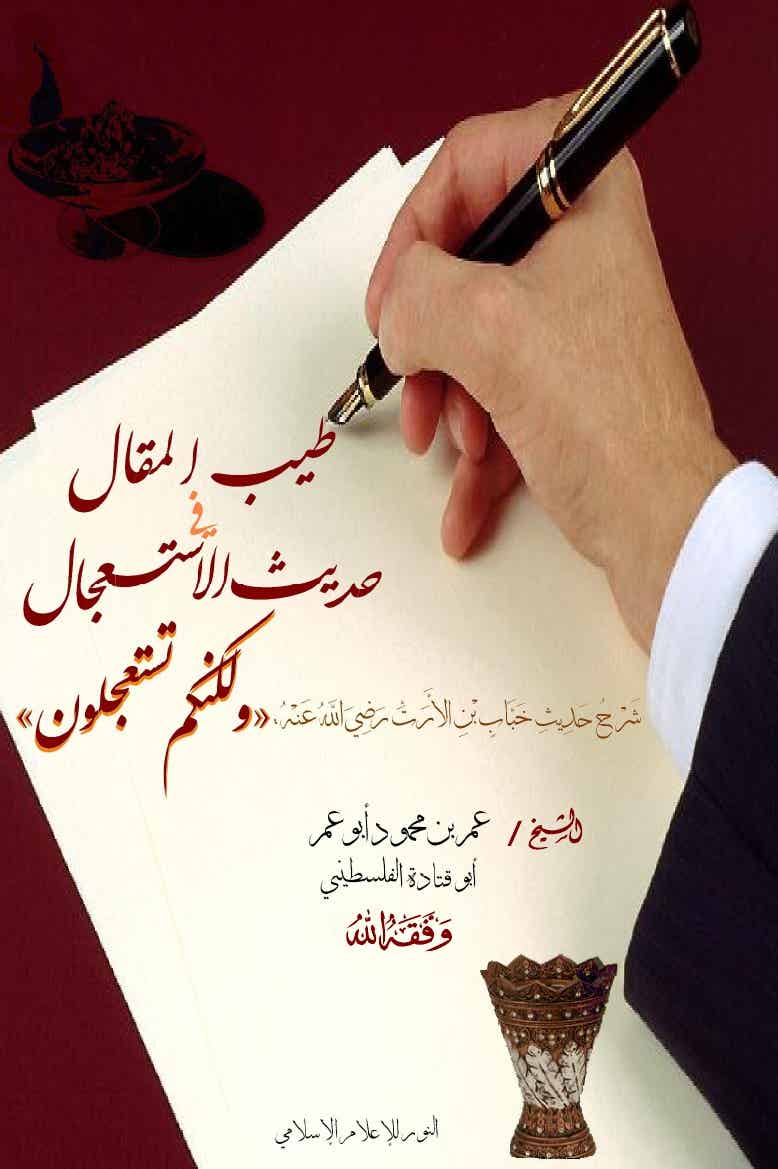 طيب المقال
في
حديث الاستعجال
شَرْحُ حَدِيثِ خَبَّابِ بْنِ الأَرَتِّ رَضِيَ اللَّهُ عَنْهُ، «ولكنكم تستعجلون»
الشيخ / عمر بن محمود أبو عمر
أبو قتادة الفلسطيني
وَفَّقَهُ اللهُ
النور للإعلام الإسلامي